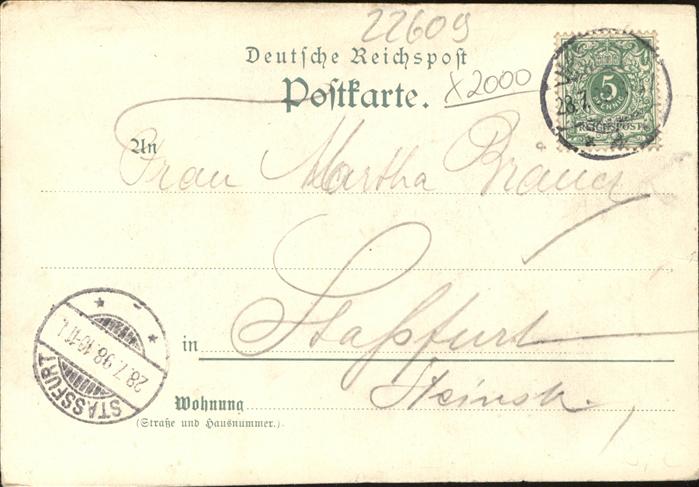 22609
Deutsche Reichspost
Postkarte.
X2000
5
PFENNIG
REICHSPOST
28.7.
An
Frau Martha Brauer
Staßfurt
in
STASSFURT
28.7.98.10-11V.
Wohnung
(Straße und Hausnummer.)